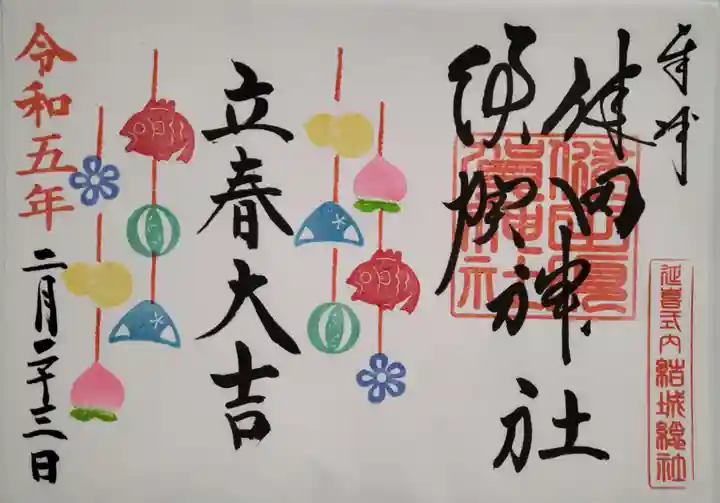 奉拝
健田
須賀神社
延喜式内 結城総社
立春大吉
令和五年
二月二十三日